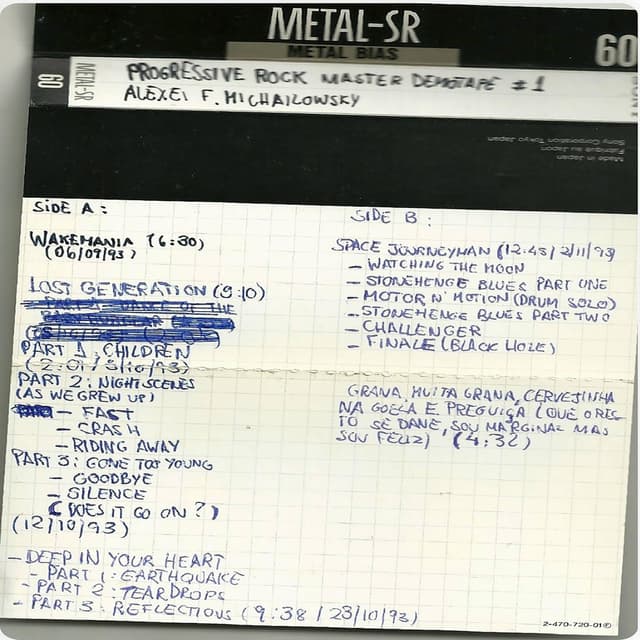 METAL-SR
METAL BIAS
60
60
METAL-SR
PROGRESSIVE ROCK MASTER DEMOTAPE #1
ALEXEI F. MICHAILOWSKY
Sony Corporation Tokyo Japan
Fabriqué au Japon
Made in Japan
SIDE A:
WAKEMANIA (6:30)
(06/09/93)
LOST GENERATION (9:10)
PART 1: CHILDREN
(2:01/5/10/93)
PART 2: NIGHT SCENES
(AS WE GREW UP)
- FAST
- CRASH
- RIDING AWAY
PART 3: GONE TOO YOUNG
- GOODBYE
- SILENCE
(DOES IT GO ON?)
(12/10/93)
- DEEP IN YOUR HEART
- PART 1: EARTHQUAKE
- PART 2: TEARDROPS
- PART 3: REFLECTIONS (9:38/23/10/93)
SIDE B:
SPACE JOURNEYMAN (12:45/2/11/93)
- WATCHING THE MOON
- STONEHENGE BLUES PART ONE
- MOTOR N' MOTION (DRUM SOLO)
- STONEHENGE BLUES PART TWO
- CHALLENGER
- FINALE (BLACK HOLE)
GRANA, MUITA GRANA, CERVEJINHA
NA GOELA E PREGUIÇA (QUE O RES
TO SE DANE, SOU MARGINAL MAS
SOU FELIZ) (4:32)
2-470-720-01